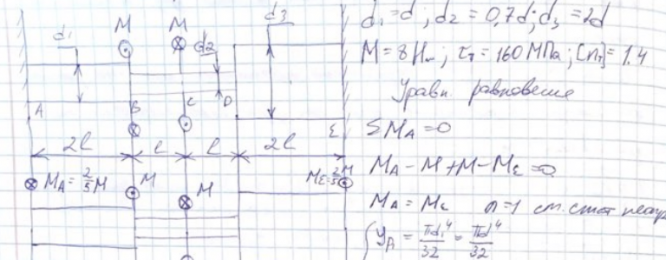 M M
d₁ d₂ d₃
A B C D E
2l l l 2l
M_A = 2/5 M M M M_E = 2/5 M
d₁ = d; d₂ = 0,7d; d₃ = 2d
M = 8 Н_м; τ_т = 160 МПа; [n_т] = 1.4
Уравн. равновесие
ΣM_A = 0
M_A − M + M − M_E = 0
M_A = M_E n = 1 ст. стат
J_A = πd₁⁴/32 = πd⁴/32